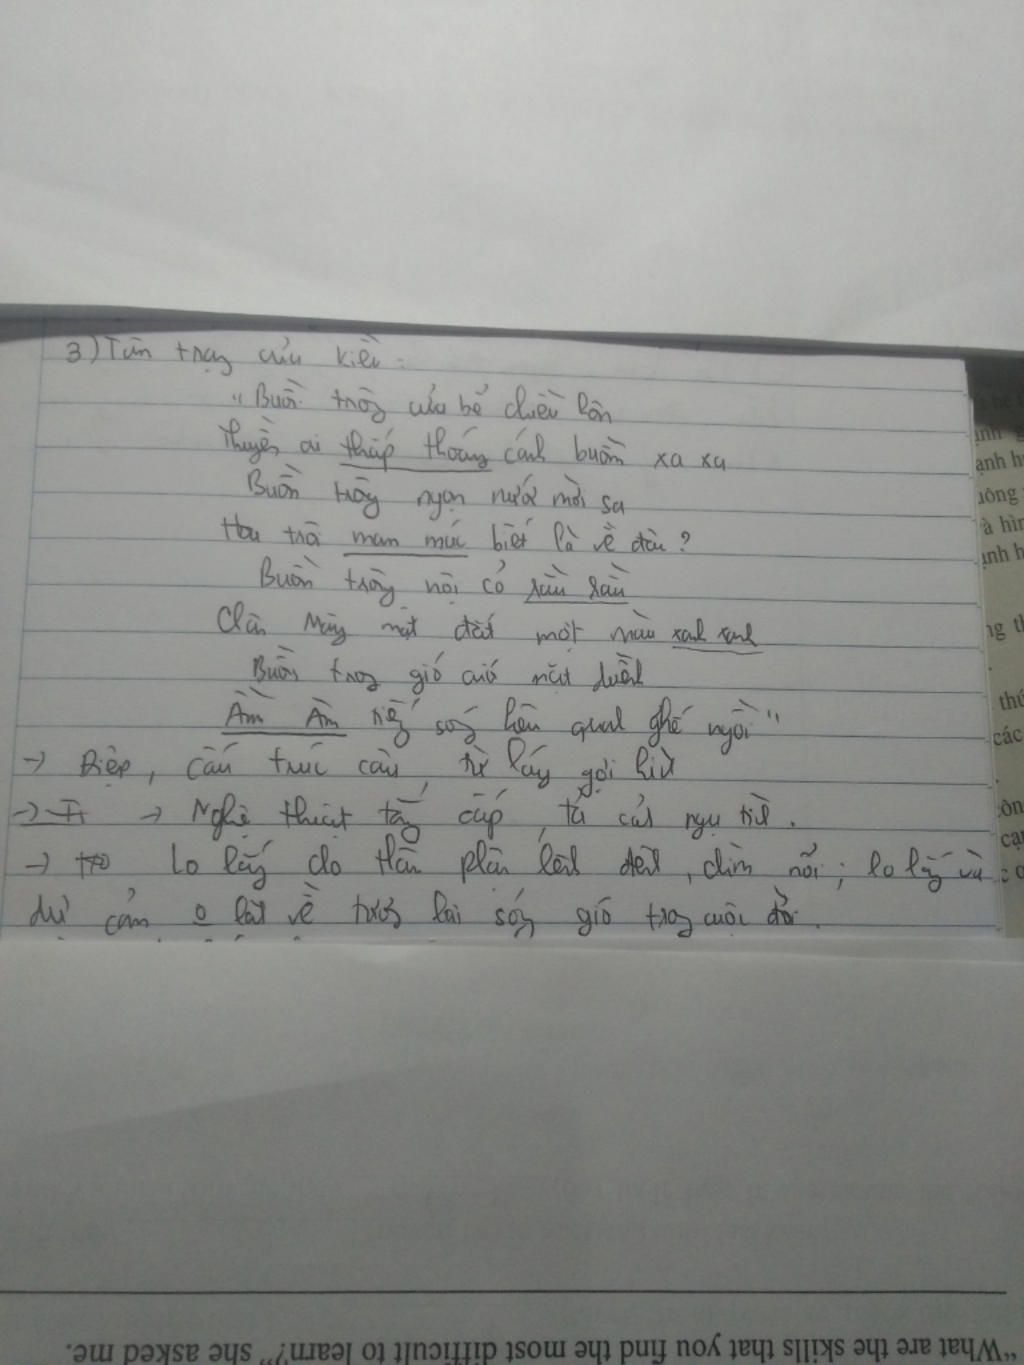 3) Tâm trạng của Kiều:
"Buồn trông cửa bể chiều hôm
Thuyền ai thấp thoáng cánh buồm xa xa
Buồn trông ngọn nước mới sa
Hoa trôi man mác biết là về đâu?
Buồn trông nội cỏ rầu rầu
Chân mây mặt đất một màu xanh xanh
Buồn trông gió cuốn mặt duềnh
Ầm Ầm tiếng sóng kêu quanh ghế ngồi"
→ Điệp, cấu trúc câu, từ láy gợi hình
→ → Nghệ thuật tăng cấp, tả cảnh ngụ tình.
→ Lo lắng cho thân phận lênh đênh, chìm nổi; lo lắng và
dự cảm về tương lai sóng gió trong cuộc đời.
"What are the skills that you find the most difficult to learn?" she asked me.